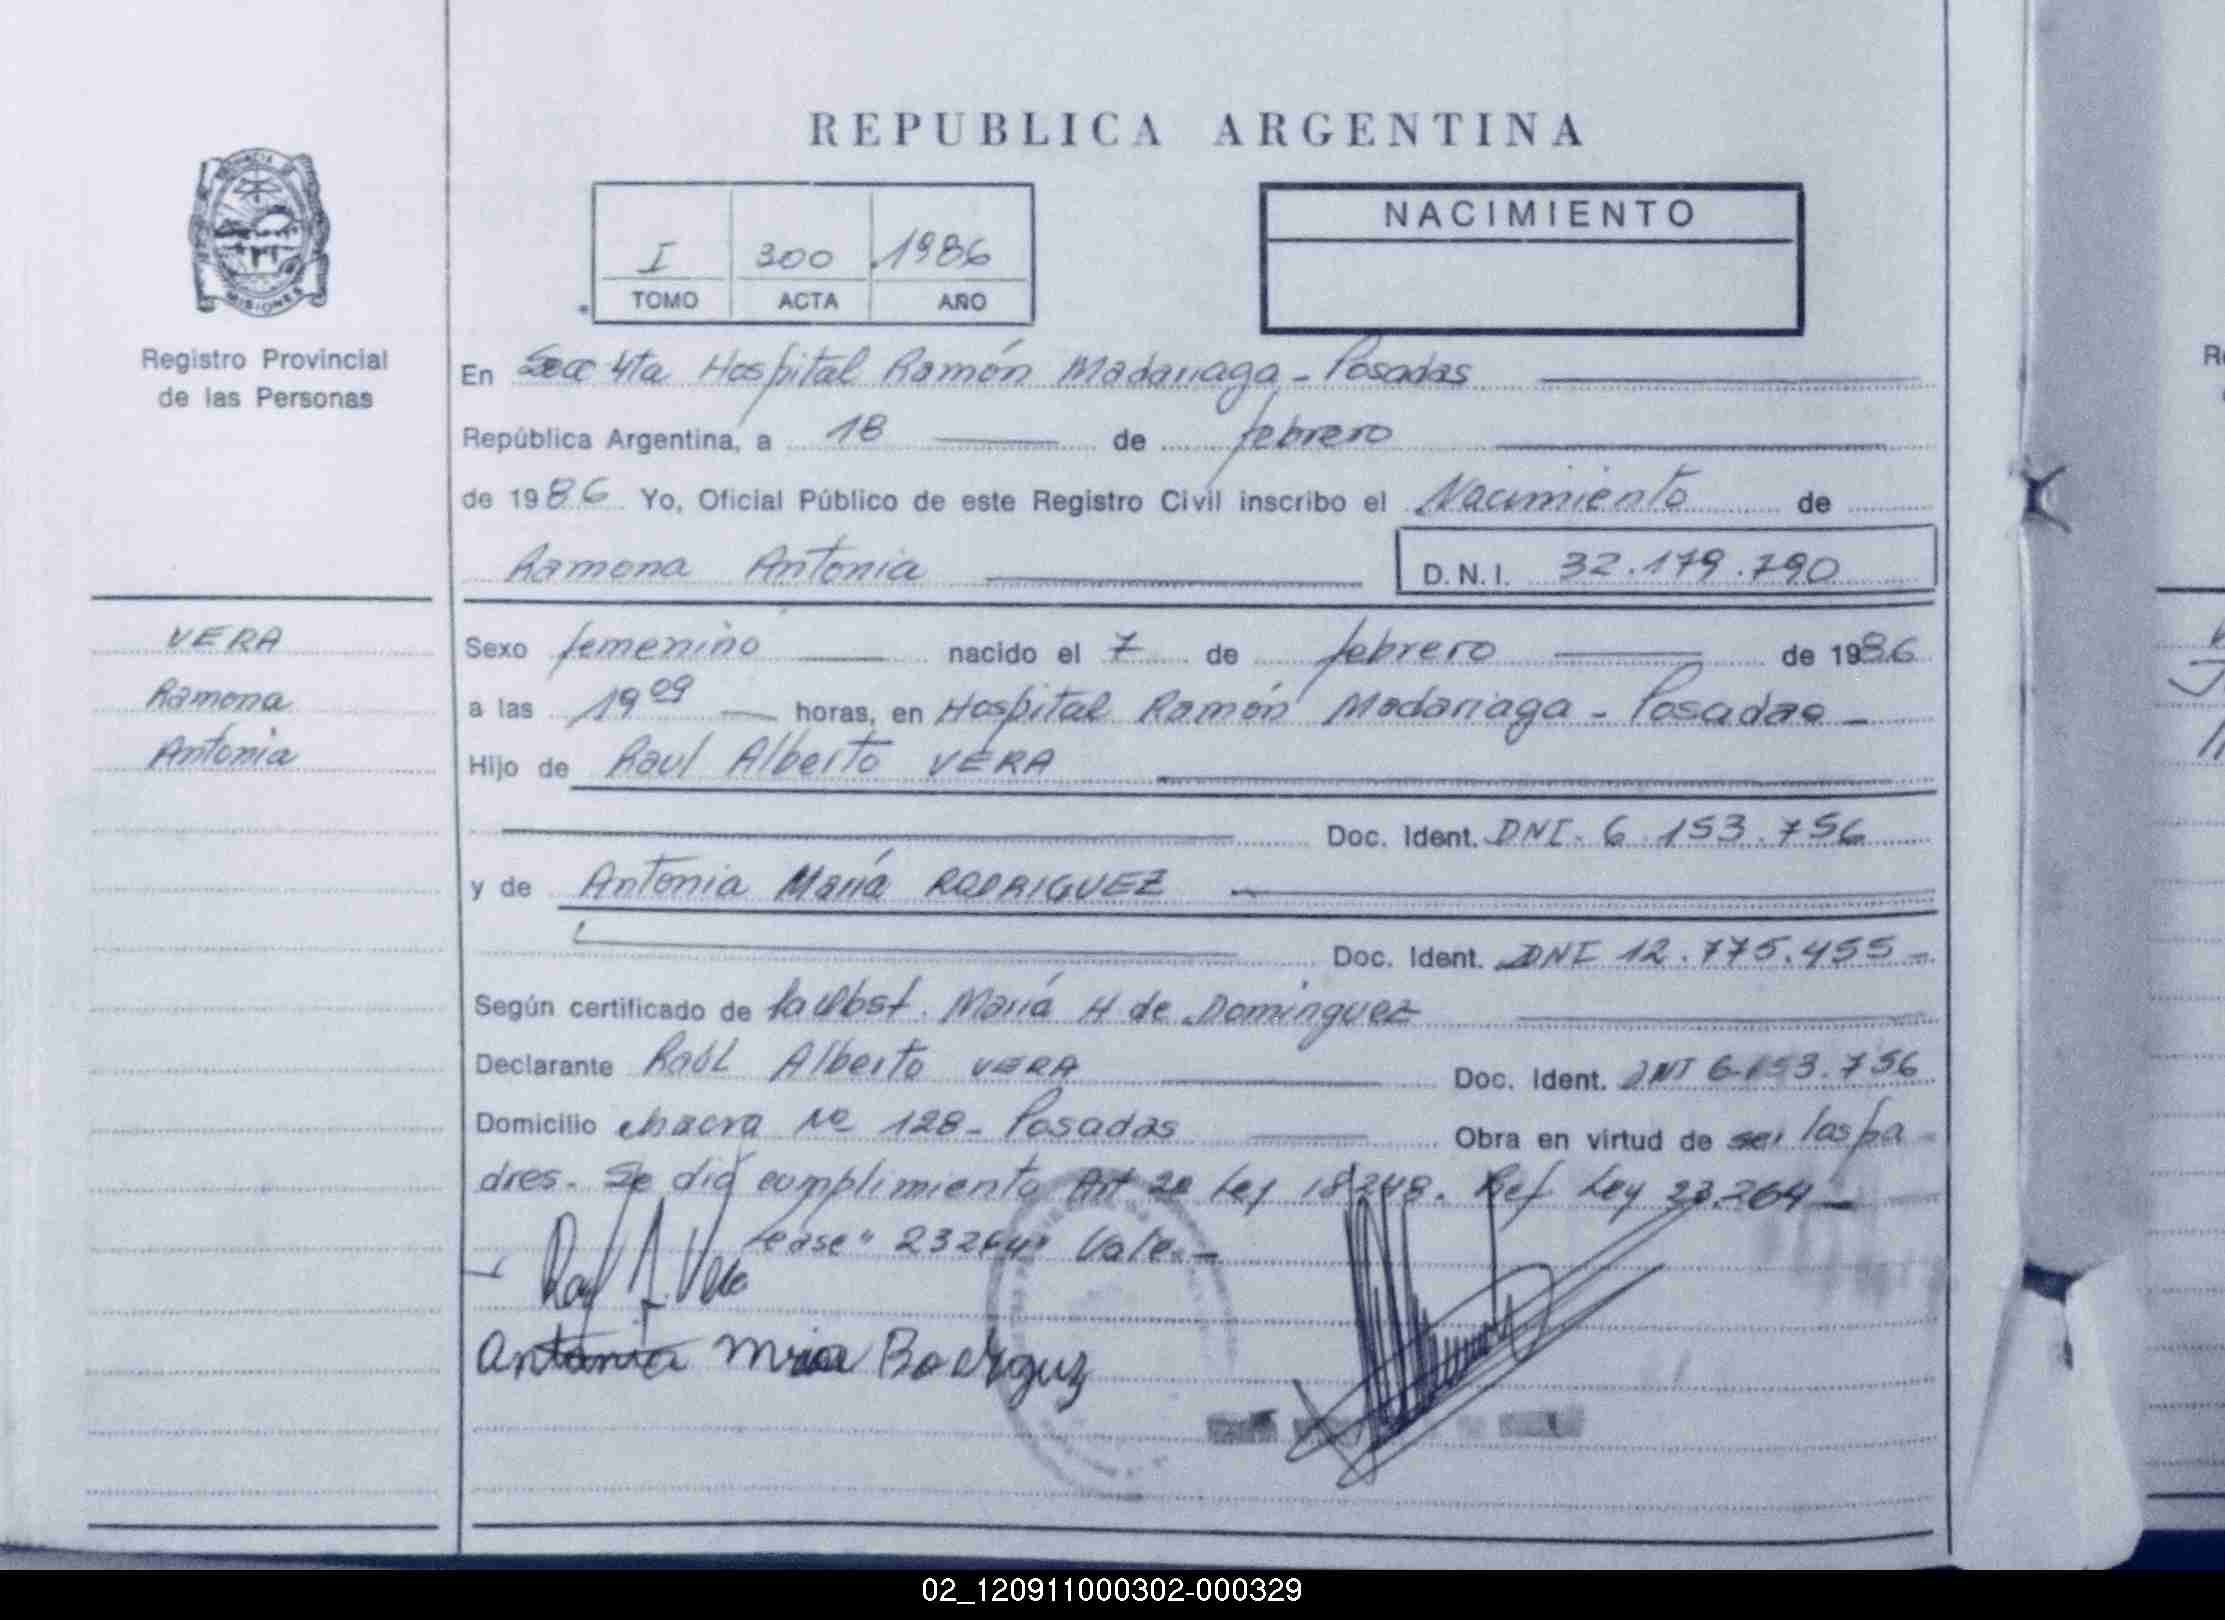 REPUBLICA ARGENTINA
I 300 1986
TOMO ACTA AÑO
NACIMIENTO
MISIONES
Registro Provincial
de las Personas
En Secc 4ta Hospital Ramón Madariaga - Posadas
República Argentina, a 18 de febrero
de 1986 Yo, Oficial Público de este Registro Civil inscribo el Nacimiento de
Ramona Antonia D.N.I. 32.179.790
VERA
Ramona
Antonia
Sexo femenino nacido el 7 de febrero de 1986
a las 19 09 horas, en Hospital Ramón Madariaga - Posadas -
Hijo de Raul Alberto VERA
Doc. Ident. DNI. 6.153.756
y de Antonia María RODRIGUEZ
Doc. Ident. DNI 12.775.455 -
Según certificado de la Obst. María H de Dominguez
Declarante Raúl Alberto VERA Doc. Ident. DNI 6.153.756
Domicilio chacra Nº 128 - Posadas Obra en virtud de ser los pa
dres. Se dió cumplimiento Art 2º Ley 18248. Ref Ley 23.264 -
Lease "23264" Vale. -
Raul A. Vera
Antonia Mria Rodrguz
02_120911000302-000329